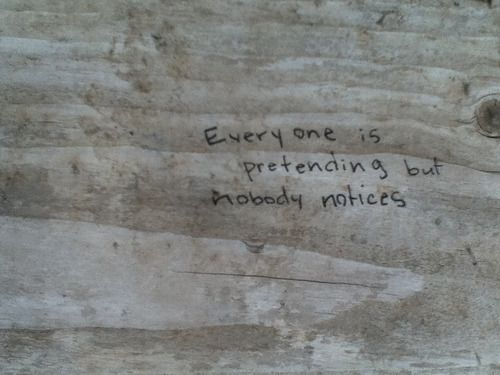 Every one is
pretending but
nobody notices